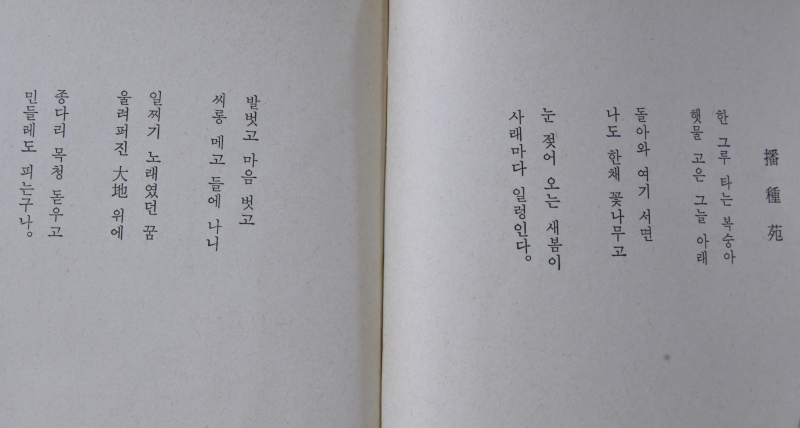 播種苑
한 그루 타는 복숭아
햇물 고은 그늘 아래
돌아와 여기 서면
나도 한채 꽃나무고
눈 젖어 오는 새봄이
사래마다 일렁인다。
발벗고 마음 벗고
씨롱 메고 들에 나니
일찌기 노래였던 꿈
울려퍼진 大地 위에
종다리 목청 돋우고
민들레도 피는구나。